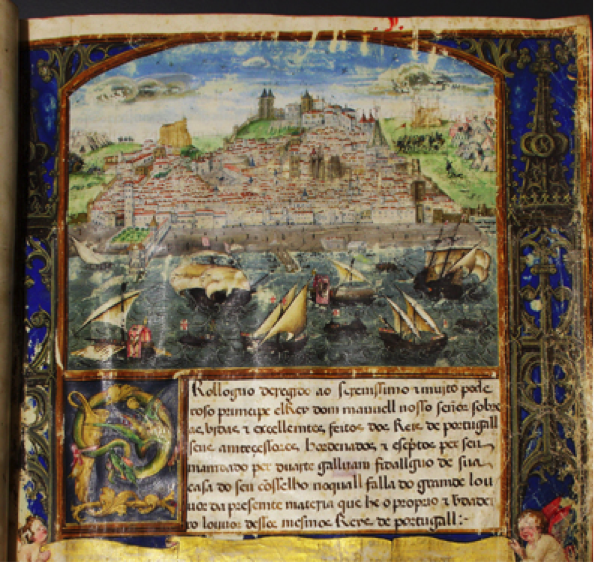 Rolloguo deregido ao serenissimo & muito pode
roso primcipe elRey dom manuell nosso señor sobre
as vydas & excellemtes feitos dos Reis de portugall
seus amtecessores, hordenados & espritos per seu
mamdado per duarte galluam fidallguo de sua
casa do seu cõsselho noquall falla do gramde lou
uor da presemte materia que he o proprio & vdadei
ro louuor desses mesmos Reys de portugall :-